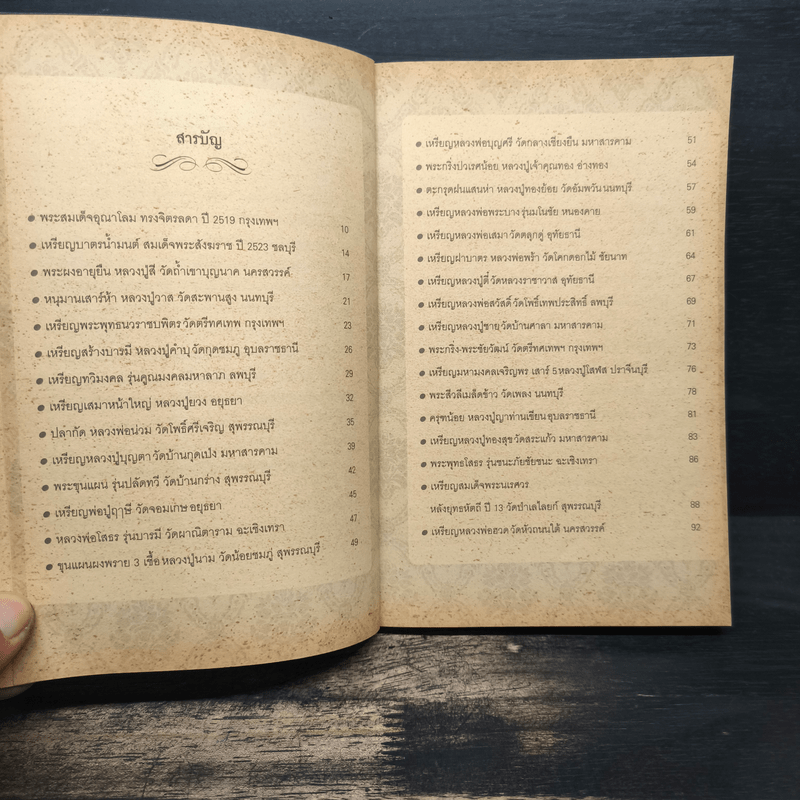 สารบัญ
พระสมเด็จอุณาโลม ทรงจิตรลดา ปี 2519 กรุงเทพฯ 10
เหรียญบาตรน้ำมนต์ สมเด็จพระสังฆราช ปี 2523 ชลบุรี 14
พระผงอายุยืน หลวงปู่สี วัดถ้ำเขาบุญนาค นครสวรรค์ 17
หนุมานเสาร์ห้า หลวงปู่วาส วัดสะพานสูง นนทบุรี 21
เหรียญพระพุทธนวราชบพิตร วัดตรีทศเทพ กรุงเทพฯ 23
เหรียญสร้างบารมี หลวงปู่คำบุ วัดกุดชมภู อุบลราชธานี 26
เหรียญทวิมงคล รุ่นคูณมงคลมหาลาภ ลพบุรี 29
เหรียญเสมาหน้าใหญ่ หลวงปู่ยวง อยุธยา 32
ปลากัด หลวงพ่อน่วม วัดโพธิ์ศรีเจริญ สุพรรณบุรี 35
เหรียญหลวงปู่บุญตา วัดบ้านกุดเป่ง มหาสารคาม 39
พระขุนแผน รุ่นปลัดทวี วัดบ้านกร่าง สุพรรณบุรี 42
เหรียญพ่อปู่ฤาษี วัดจอมเกษ อยุธยา 45
หลวงพ่อโสธร รุ่นบารมี วัดผาณิตาราม ฉะเชิงเทรา 47
ขุนแผนผงพราย 3 เชื้อ หลวงปู่นาม วัดน้อยชมภู่ สุพรรณบุรี 49
เหรียญหลวงพ่อบุญศรี วัดกลางเชียงยืน มหาสารคาม 51
พระกริ่งปวเรศน้อย หลวงปู่เจ้าคุณทอง อ่างทอง 54
ตะกรุดฝนแสนห่า หลวงปู่ทองย้อย วัดอัมพวัน นนทบุรี 57
เหรียญหลวงพ่อพระบาง รุ่นมโนชัย หนองคาย 59
เหรียญหลวงพ่อเสมา วัดตลุกดู่ อุทัยธานี 61
เหรียญฝาบาตร หลวงพ่อพร้า วัดโคกดอกไม้ ชัยนาท 64
เหรียญหลวงปู่ตี๋ วัดหลวงราชาวาส อุทัยธานี 67
เหรียญหลวงพ่อสวัสดิ์ วัดโพธิ์เทพประสิทธิ์ ลพบุรี 69
เหรียญหลวงปู่ชาย วัดบ้านศาลา มหาสารคาม 71
พระกริ่ง-พระชัยวัฒน์ วัดตรีทศเทพฯ กรุงเทพฯ 73
เหรียญมหามงคลเจริญพร เสาร์ 5 หลวงปู่โสฬส ปราจีนบุรี 76
พระสีวลีเมล็ดข้าว วัดเพลง นนทบุรี 78
ครุฑน้อย หลวงปู่ญาท่านเขียน อุบลราชธานี 81
เหรียญหลวงปู่ทองสุข วัดสระแก้ว มหาสารคาม 83
พระพุทธโสธร รุ่นชนะภัยชัยชนะ ฉะเชิงเทรา 86
เหรียญสมเด็จพระนเรศวร
หลังยุทธหัตถี ปี 13 วัดป่าเลไลยก์ สุพรรณบุรี 88
เหรียญหลวงพ่อฮวด วัดหัวถนนใต้ นครสวรรค์ 92